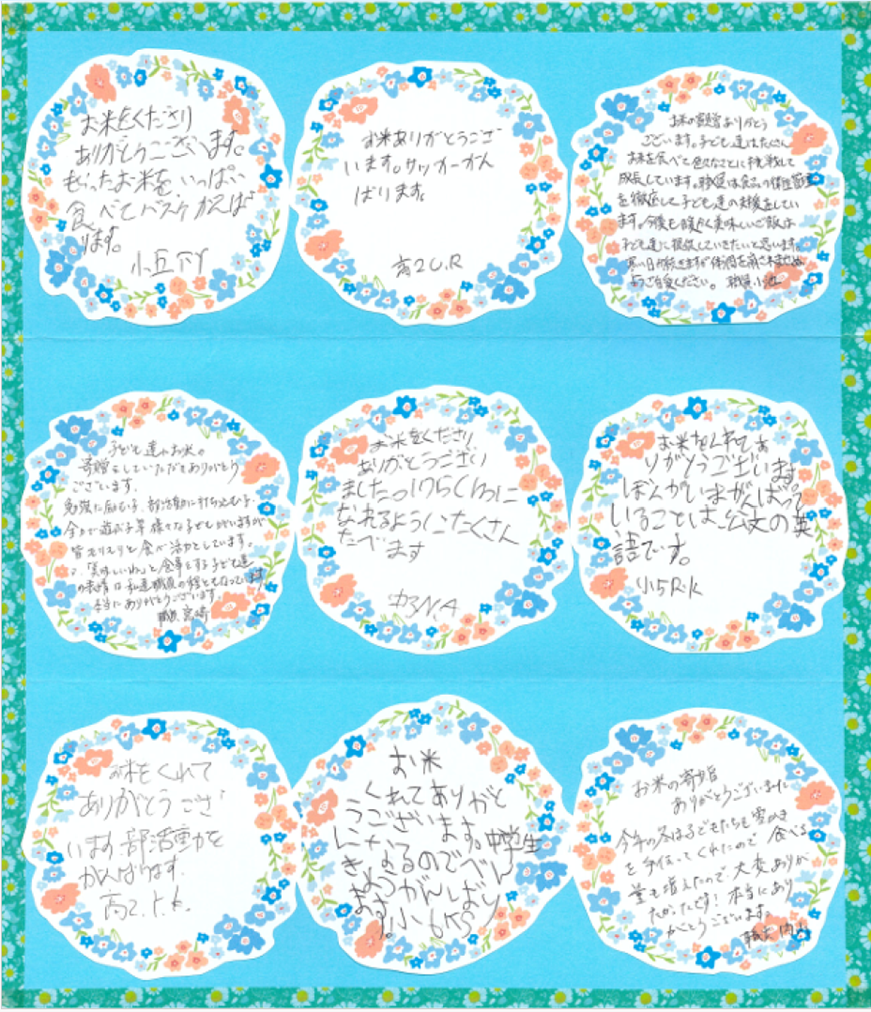 お米をくださり
ありがとうございます。
もらったお米を、いっぱい
食べてバスケがんば
ります。
小五 T.Y
お米ありがとうござ
います。サッカーがん
ばります。
高2 U.R
お米の寄贈ありがとう
ございます。子ども達はたくさん
お米を食べて色々なことに挑戦して
成長しています。職員は食品の衛生管理
を徹底して子ども達の支援をしてい
ます。今後も暖かく美味しいご飯を
子ども達に提供していきたいと思います。
寒い日が続きますが体調を崩されませぬ
ようご自愛ください。 職員 小池
子ども達へお米の
寄贈をしていただきありがとう
ございます。
勉強に励む子、部活動に打ち込む子、
全力で遊ぶ子等 様々な子どもがいますが
皆モリモリと食べ活力としています。
「美味しいね」と食事をする子ども達
の表情は私達職員の糧ともなっています。
本当にありがとうございます。
職員 宮崎
お米をくださり
ありがとうござい
ました。
なれるようにたくさん
たべます
中3 N.A
お米をくれてあ
りがとうございます。
ぼくがいまがんばって
いることは、公文の英
語です。
小5 R.K
お米をくれて
ありがとうござ
います 部活動を
がんばります。
高2. Y.K.
お米
くれてありがと
うございます。中学生
になるのでべん
きょうがんばり
ます。小6 K.S
お米の寄贈
ありがとうございました
今年の冬は子どもたちも雪かき
を手伝ってくれたので 食べる
量も増えたので、大変ありが
たかったです！本当にあり
がとうございます。
職員 内山